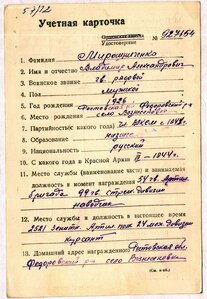 57/12
Учетная карточка
Орденская книжка № 927164
Удостоверение
1. Фамилия Мирошниченко
2. Имя и отчество Владимир Александрович
3. Воинское звание гв. рядовой
4. Пол мужской
5. Год рождения 1926
6. Место рождения Ростовская Федоровский р-н
село Вознесенка
7. Партийность(с какого года) чл. ВЛКСМ с 1942 г.
8. Образование низшее
9. Национальность русский
10. С какого года в Красной Армии III-1944 г.
11. Место службы (наименование части) и занимаемая
должность в момент награждения
бригада 99 гв. стрел. дивизии
наводчик
12. Место службы и должность в настоящее время
258 зенитн. Артил. полк 24 мех. дивизии
курсант
13. Домашний адрес награжденного Ростовская обл.
Федоровский р-н село Вознесенка
(См. н-об.)